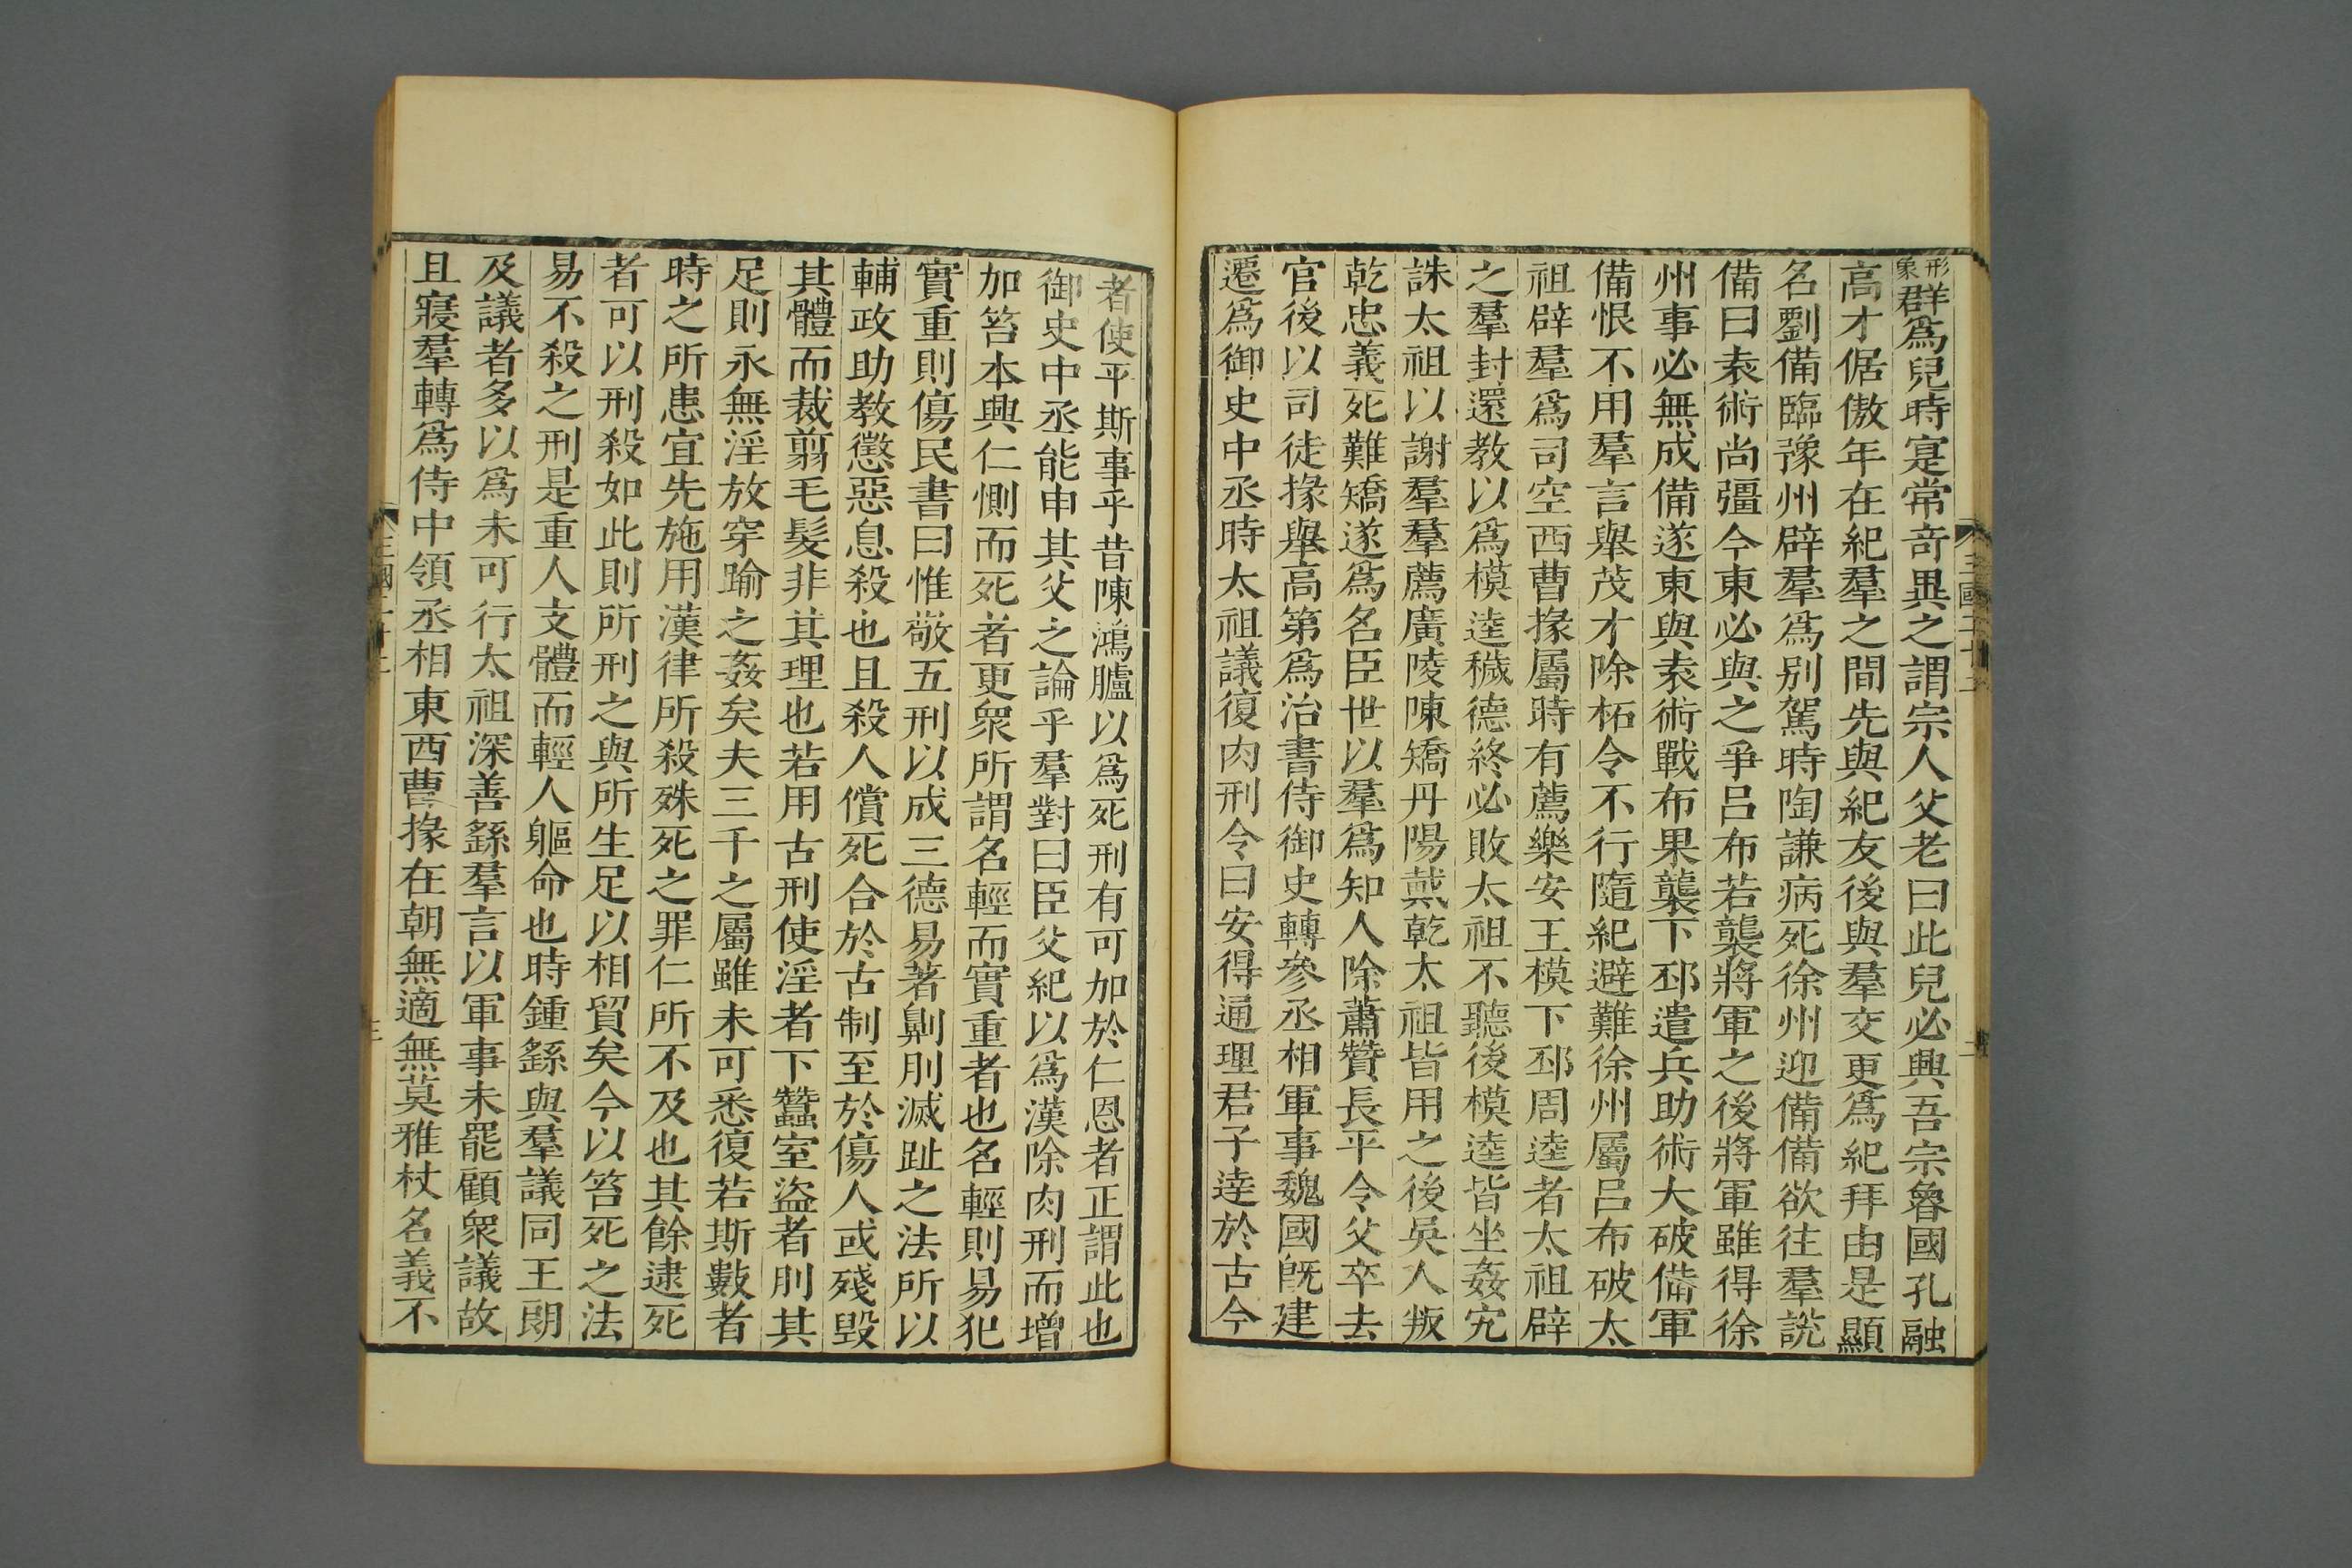 形象群爲兒時寔常奇異之謂宗人父老曰此兒必興吾宗魯國孔融
高才倨傲年在紀羣之間先與紀友後與羣交更爲紀拜由是顯
名劉備臨豫州辟羣爲別駕時陶謙病死徐州迎備備欲往羣說
備曰袁術尚彊今東必與之爭呂布若襲將軍之後將軍雖得徐
州事必無成備遂東與袁術戰布果襲下邳遣兵助術大破備軍
備恨不用羣言舉茂才除柘令不行隨紀避難徐州屬呂布破太
祖辟羣爲司空西曹掾屬時有薦樂安王模下邳周逵者太祖辟
之羣封還教以爲模逵穢德終必敗太祖不聽後模逵皆坐姦宄
誅太祖以謝羣羣薦廣陵陳矯丹陽戴乾太祖皆用之後吳人叛
乾忠義死難矯遂爲名臣世以羣爲知人除蕭贊長平令父卒去
官後以司徒掾舉高第爲治書侍御史轉參丞相軍事魏國旣建
遷爲御史中丞時太祖議復肉刑令曰安得通理君子達於古今
三國二十二
者使平斯事乎昔陳鴻臚以爲死刑有可加於仁恩者正謂此也
御史中丞能申其父之論乎羣對曰臣父紀以爲漢除肉刑而增
加笞本興仁惻而死者更衆所謂名輕而實重者也名輕則易犯
實重則傷民書曰惟敬五刑以成三德易著劓刖滅趾之法所以
輔政助教懲惡息殺也且殺人償死合於古制至於傷人或殘毀
其體而裁剪毛髮非其理也若用古刑使淫者下蠶室盜者刖其
足則永無淫放穿踰之姦矣夫三千之屬雖未可悉復若斯數者
時之所患宜先施用漢律所殺殊死之罪仁所不及也其餘逮死
者可以刑殺如此則所刑之與所生足以相貿矣今以笞死之法
易不殺之刑是重人支體而輕人軀命也時鍾繇與羣議同王朗
及議者多以爲未可行太祖深善繇羣言以軍事未罷顧衆議故
且寢羣轉爲侍中領丞相東西曹掾在朝無適無莫雅杖名義不